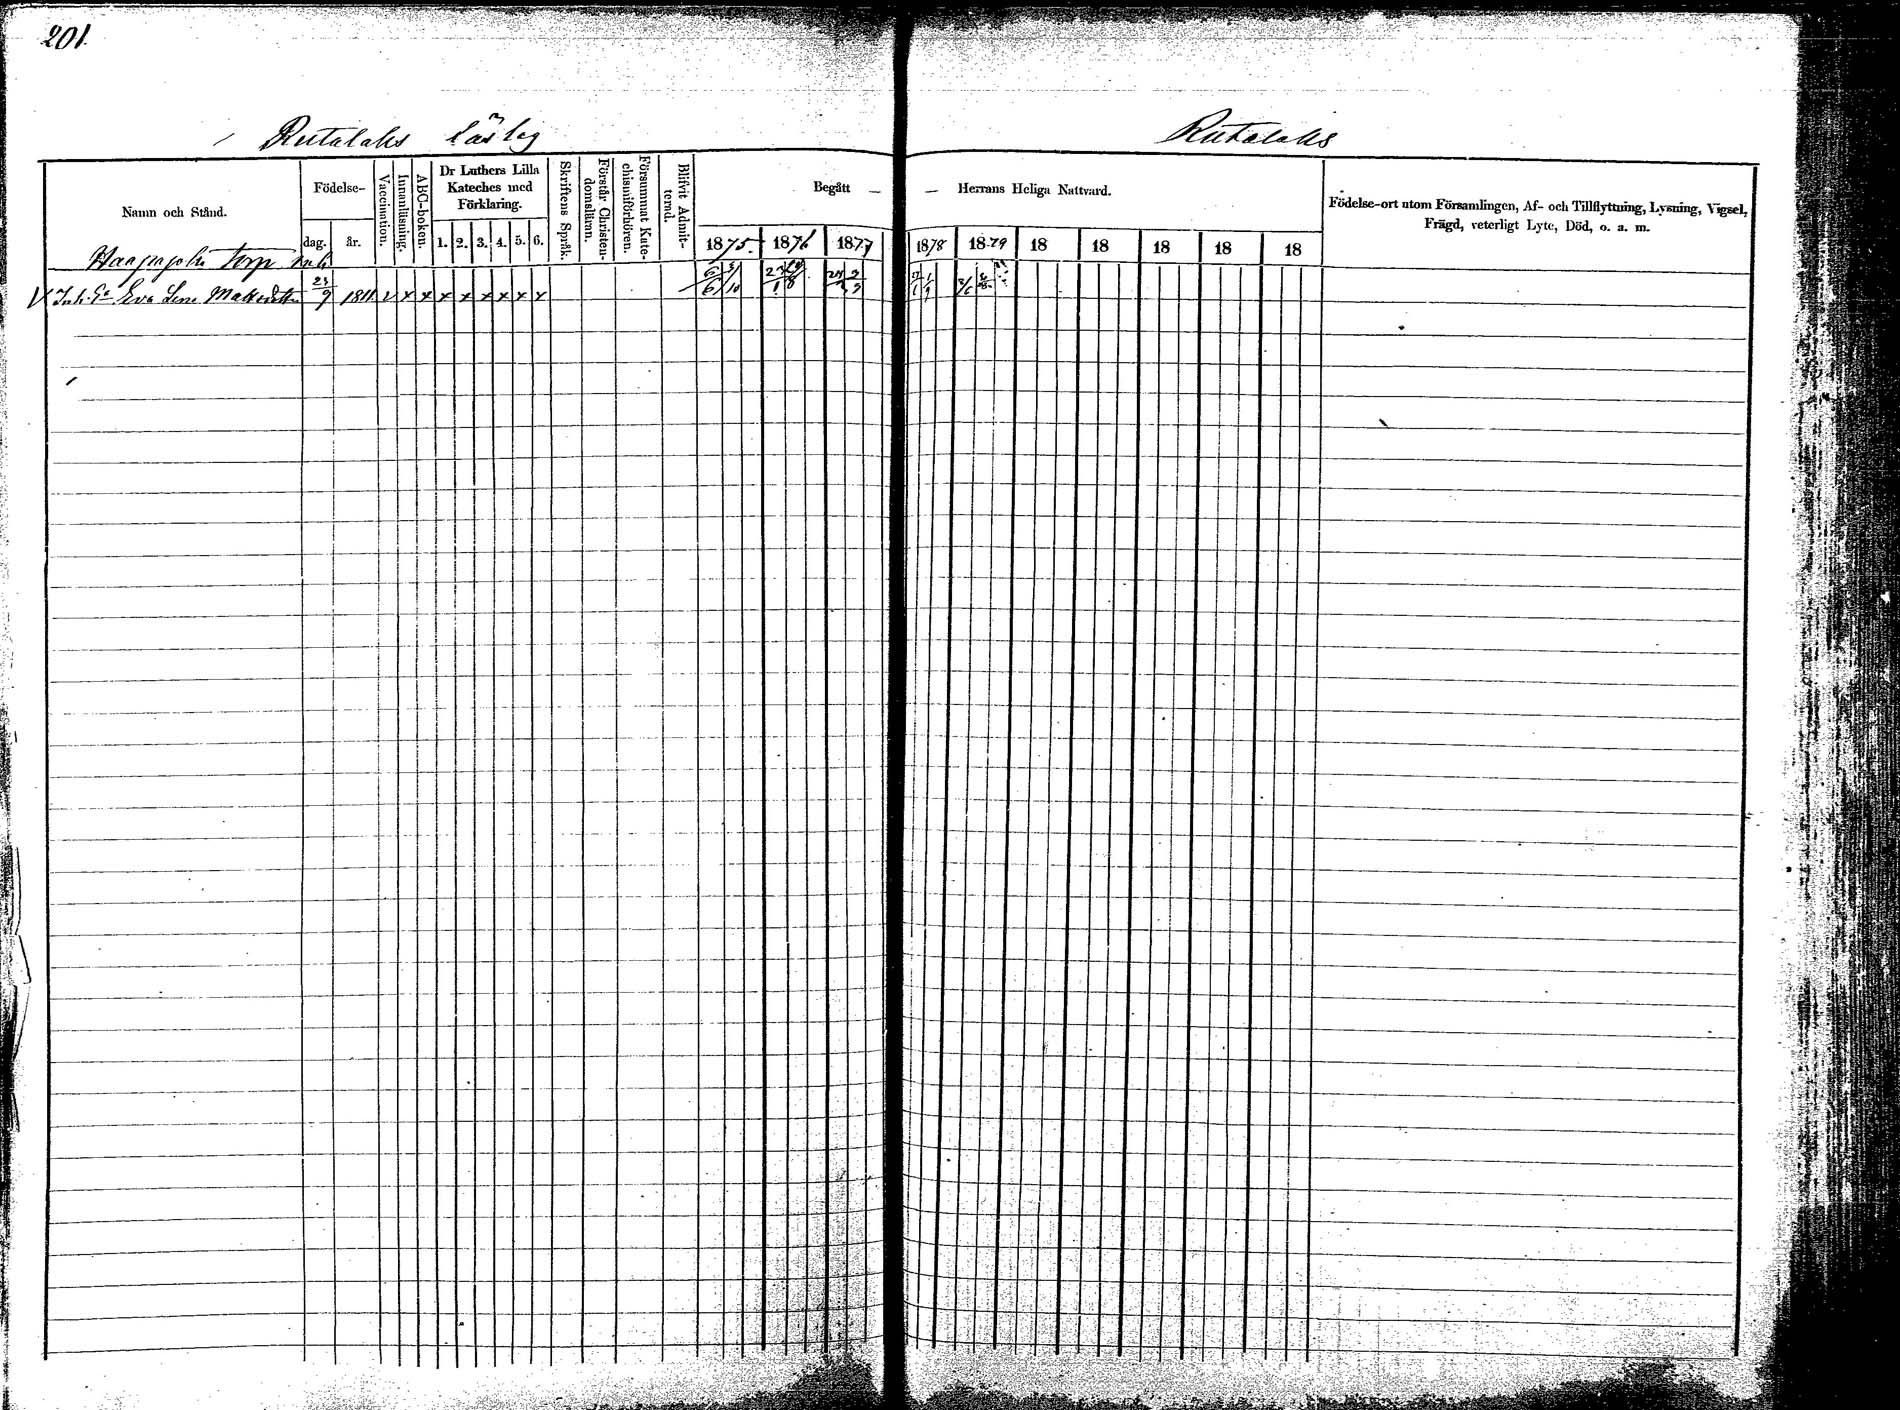 201.
Rutalaks läslag
Rutalaks
Namn och Stånd.
Födelse-
dag.
år.
Vaccination.
Innanläsning.
ABC-boken.
Dr Luthers Lilla
Kateches med
Förklaring.
1. 2. 3. 4. 5. 6.
Skriftens Språk.
Förstår Christen-
domsläran.
Försummat Kate-
chismiförhören.
Blifvit Admit-
terad.
Begått — — Herrans Heliga Nattvard.
1875 1876 1877 1878 1879 18 18 18 18 18
Födelse-ort utom Församlingen, Af- och Tillflyttning, Lysning, Vigsel,
Frägd, veterligt Lyte, Död, o. a. m.
torp
Eva Lena Matsdotter 23/9 1811 v x x x x x x x x